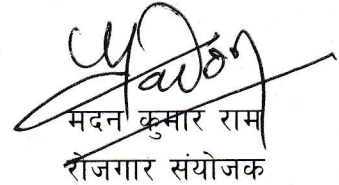 मदन कुमार राम
रोजगार संयोजक